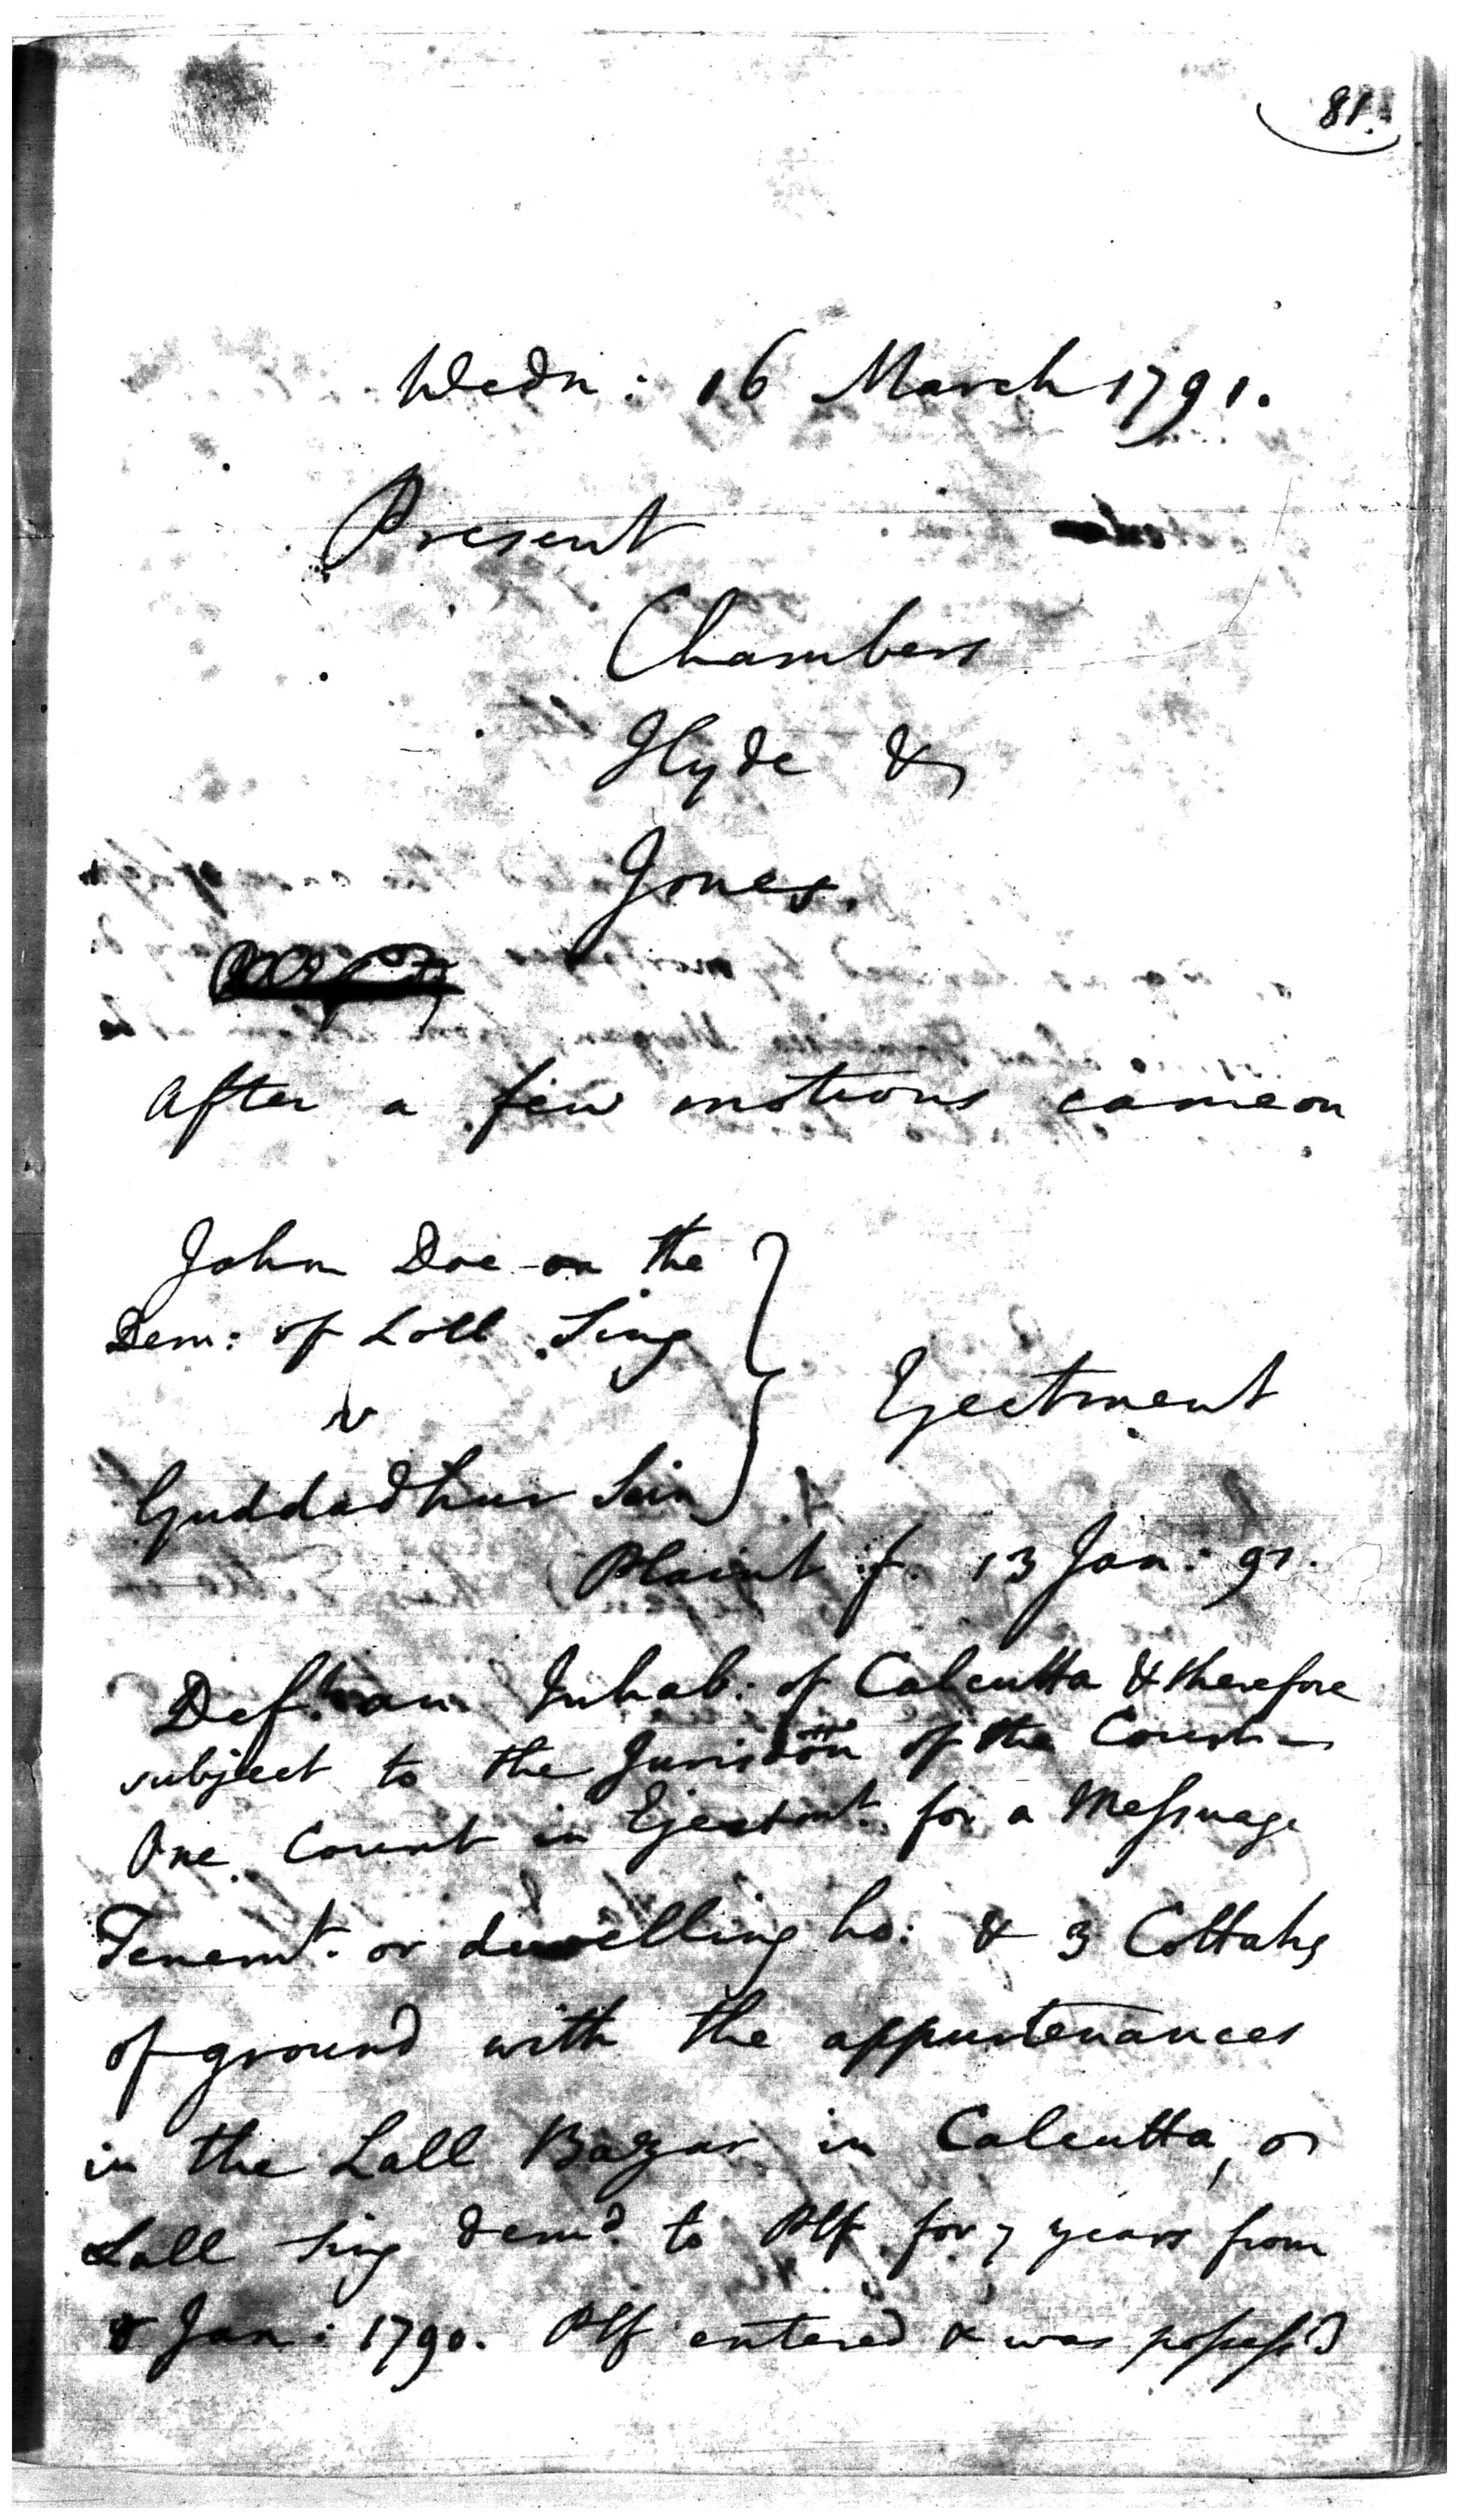 81.
Wedn: 16 March 1791.
Present
Chambers
Hyde &
Jones.
After a few motions came on
John Doe on the
Dem: of Loll Sing
v
Guddadhur Sein
Ejectment
Plaint f. 13 Jan: 91.
Def. an Inhab: of Calcutta & therefore
subject to the of the Court
One Count in Ejectmt. for a Messuage
Tenemt. or dwelling ho: & 3 Cottahs
of ground with the appurtenances
in the Lall Bazar in Calcutta,
Lall Sing demd. to Plf for 7 years from
Jan: 1790. Plf entered & was possess'd